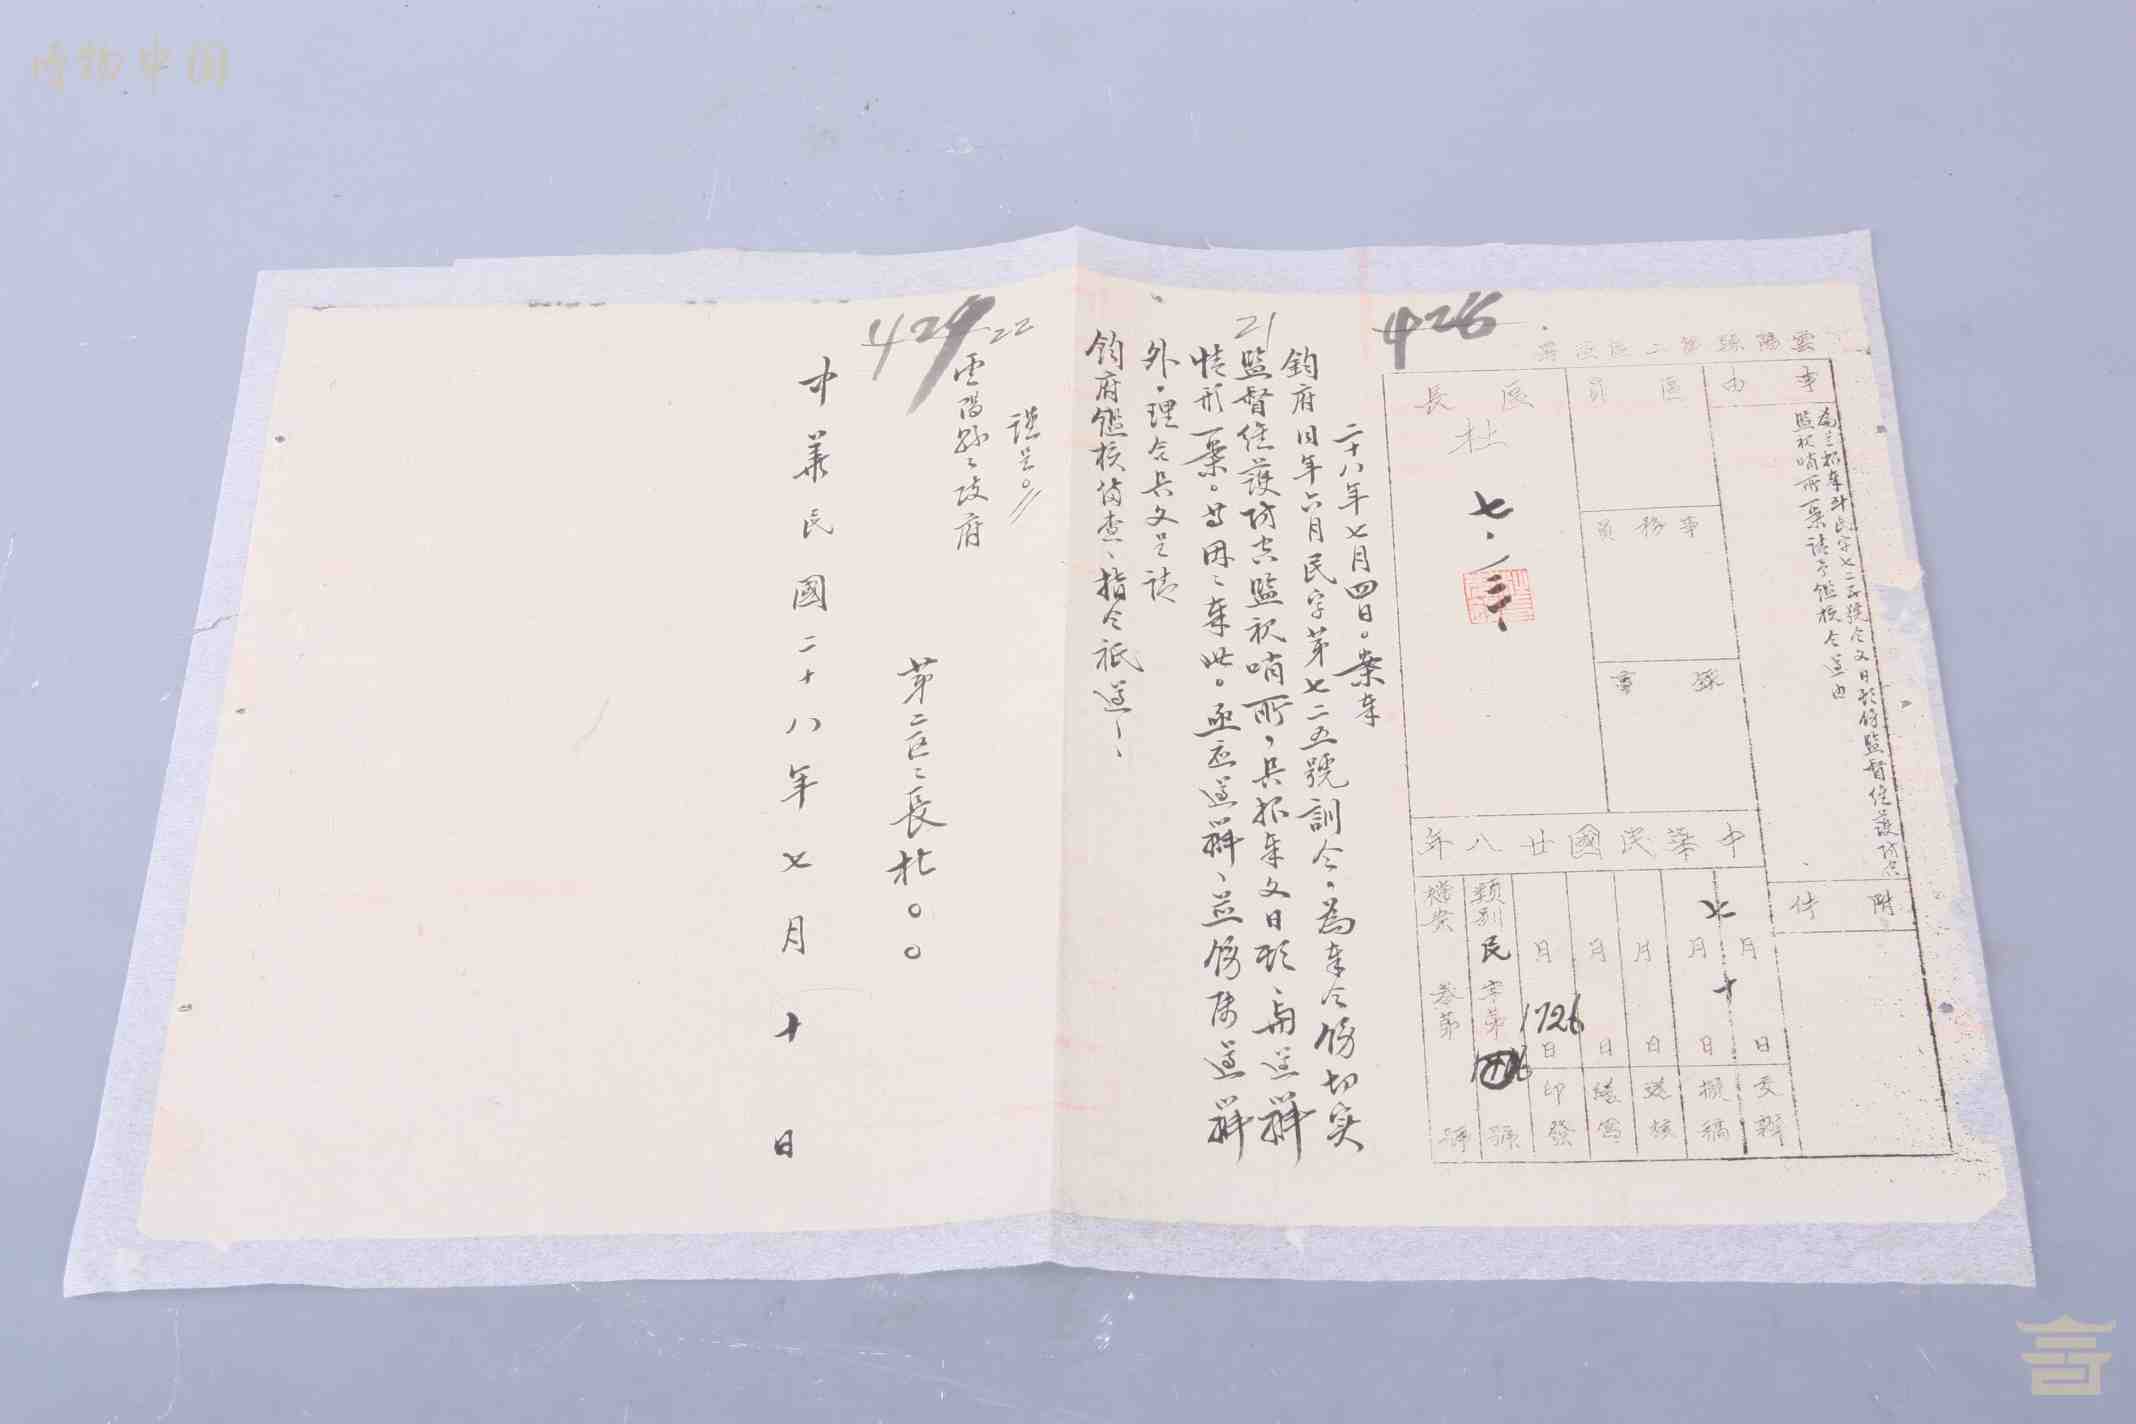 博物中国
雲陽縣第二區區署
事由
為呈報奉到民字七二五號令文日期併監督促護防空
監視哨所一案請予鑑核令遵由
附件
區員
事務員
錄事
區長
杜
七·一三
中華民國廿八年
七月十日
月日交辦
月日擬稿
月日送核
月日繕寫
月日印發
類別民字第號
1726
檔案卷第號
426
二十八年七月四日。案奉
鈞府本年六月民字第七二五號訓令，為奉令飭切实
21
監督促護防空監視哨所，具報奉文日期，
情形一案。等因；奉此。
外，理合具文呈請
鈞府鑑核備查、指令祇遵！
謹呈。
22
429
雲陽縣縣政府
第二區區長杜○○
中華民國二十八年七月十日